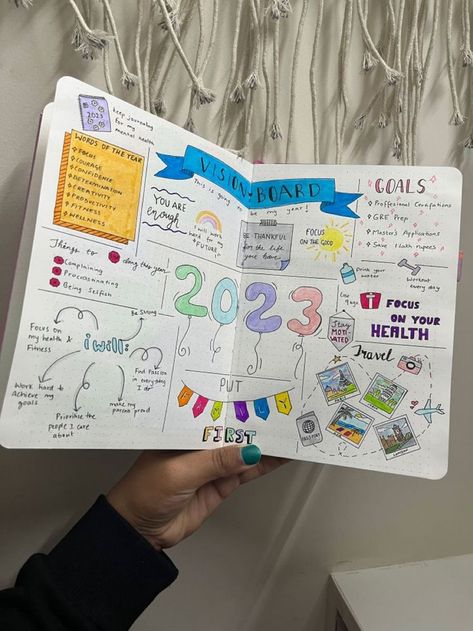 2023
keep journaling
for my
mental health
WORDS OF THE YEAR
FOCUS
COURAGE
CONFIDENCE
DETERMINATION
CREATIVITY
PRODUCTIVITY
FITNESS
WELLNESS
VISION BOARD
This is going to be my year!
YOU ARE
enough
I will work
hard for my
FUTURE!
BE THANKFUL
for the life
you have
FOCUS
ON THE GOOD
GOALS
Proffesional Certifications
GRE Prep
Master's Applications
Save 1 lakh rupees
Things to
this year
Complaining
Procrastinating
Being Selfish
2023
Drink your
water
Workout
every day
Lose
FOCUS
ON YOUR
HEALTH
Stay
MOTI-
VATED
i will:
Be Strong
Focus on
my health &
Fitness
Find Passion
in everyday
I do
Work hard to
Achieve my
goals
make my
parents proud
Prioritize the
people I care
about
PUT
FAMILY
FIRST
Travel
PASSPORT